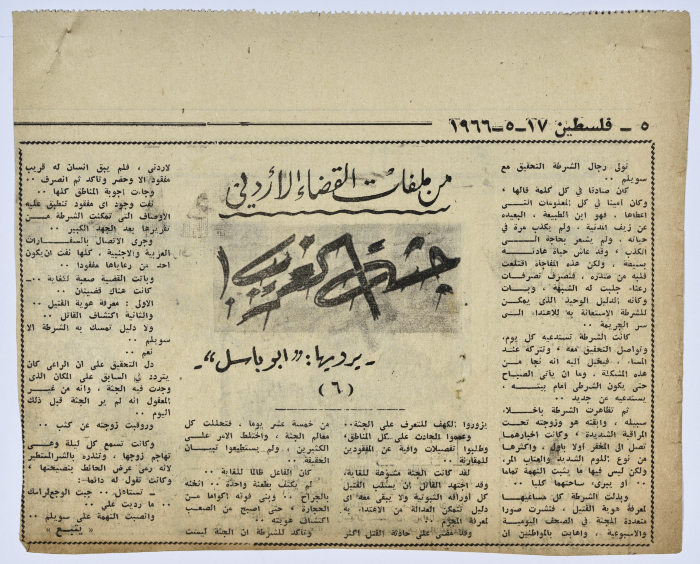 ٥ ـ فلسطين ١٧ـ٥ـ١٩٦٦
من ملفات القضاء الأردني
جثة الغريب!
ـ يرويها: «ابو باسل» ـ
(٦)
تولى رجال الشرطة التحقيق مع
سويلم ..
كان صادقا في كل كلمة قالها ،
وكان امينا في كل المعلومات التي
اعطاها . فهو ابن الطبيعة ، البعيده
عن زيف المدنية ، ولم يكذب مرة في
حياته . ولم يشعر بحاجة الى
الكذب . وقد عاش حياة هادئة
بسيطة . ولكن هذه المفاجأة اقتلعت
قلبه من صدره . فتصرف تصرفات
رعناء جلبت له الشبهه . وبات
وكأنه الدليل الوحيد الذي يمكن
للشرطة الاستعانة به للاهتداء الى
سر الجريمة ..
كانت الشرطة تستدعيه كل يوم،
وتواصل التحقيق معه . وتتركه عند
المساء . فيخيل اليه انه نجا من
هذه المشكلة . وما ان يأتي الصباح
حتى يكون الشرطي امام بيته ..
يستدعيه من جديد ..
ثم تظاهرت الشرطة باخلاء
سبيله ، وابقته هو وزوجته تحت
المراقبة الشديدة . وكانت اخبارهما
تصل الى المخفر اولا باول . واكثرها
من نوع اللوم الشديد والعتاب المر،
ولكن ليس فيها ما يثبت التهمة تماما
.. او يبرىء ساحتهما كليا ..
وبذلت الشرطة كل مساعيها
لمعرفة هوية القتيل . فنشرت صورا
متعددة للجثة في الصحف اليومية
والاسبوعية . واهابت بالمواطنين ان
يزوروا الكهف للتعرف على الجثة..
وعمموا الحادث على كل المناطق،
وطلبوا تفصيلات وافية عن المفقودين
للمقارنة ..
لقد كانت الجثة مشوهة للغاية.
وقد اجتهد القاتل ان يسلب القتيل
كل اوراقه الثبوتية ولا يبقى معه اي
دليل تتمكن العدالة من الاهتداء به
لمعرفة المجرم ..
وقد مضى على حادثة القتل اكثر
من خمسة عشر يوما . فتحللت كل
معالم الجثة . واختلط الامر على
الكثيرين . ولم يستطيعوا تبيان
الحقيقة ..
كان الفاعل ظالما للغاية ..
لم يكتف بطعنة واحدة .. اثخنه
بالجراح .. وبنى فوقه اكواما من
الحجارة . حتى اصبح من الصعب
اكتشاف هويته ..
وتأكد للشرطة ان الجثة ليست
لاردني ، فلم يبق انسان له قريب
مفقود الا وحضر وتأكد ثم انصرف ..
وجاءت اجوبة المناطق كلها ..
نفت وجود اي مفقود تنطبق عليه
الاوصاف التي تمكنت الشرطة من
تقريرها بعد الجهد الكبير ..
وجرى الاتصال بالسفارات
العربية والاجنبية . كلها نفت ان يكون
احد من رعاياها مفقودا ..
وباتت القضية صعبة للغاية ..
كانت هناك قضيتان ..
الاولى : معرفة هوية القتيل ..
والثانية اكتشاف القاتل ..
ولا دليل تمسك به الشرطة الا
سويلم ..
نعم ..
دل التحقيق على ان الراعي كان
يتردد في السابق على المكان الذي
وجدت فيه الجثة ، وانه من غير
المعقول انه لم ير الجثة قبل ذلك
اليوم ..
وروقبت زوجته عن كثب ..
وكانت تسمع كل ليلة وهي
تهاجم زوجها . وتنذره بالشر المستطير
لانه رمى عرض الحائط بنصيحتها .
وكانت تقول له دائما:
ـ تستاهل .. جبت الوجع لراسك
.. ما رديت علي ..
وانصبت التهمة على سويلم ..
« يتبع »